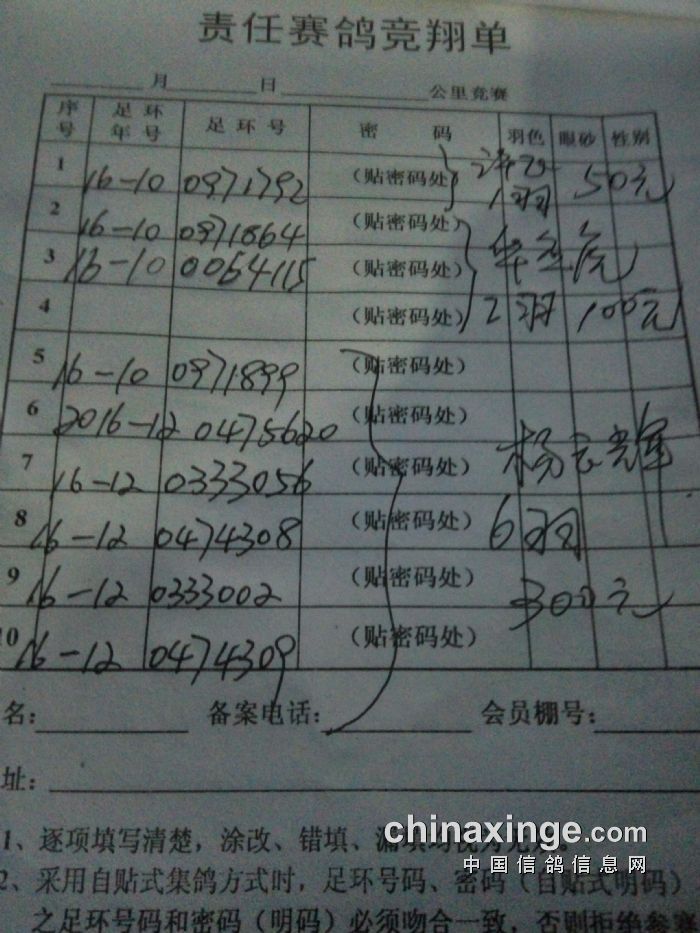 责任赛鸽竞翔单
月 日 公里竞赛
序号 足环年号 足环号 密码 羽色 眼砂 性别
1 16-10 0971792 (贴密码处) 1羽 50元
2 16-10 0971864 (贴密码处)
3 16-10 0064115 (贴密码处)
4 (贴密码处) 2羽 100元
5 16-10 0971899 (贴密码处)
6 2016-12 0475620 (贴密码处)
7 16-12 0333056 (贴密码处) 杨志辉
8 16-12 0474308 (贴密码处) 6羽
9 16-12 0333002 (贴密码处) 300元
10 16-12 0474309 (贴密码处)
名: 备案电话: 会员棚号:
址:
1、逐项填写清楚，涂改、错填、漏填均视为无效。
chinaxinge.com
中国信鸽信息网
2、采用自贴式集鸽方式时，足环号码、密码（自贴式明码）
之足环号码和密码（明码）必须吻合一致，否则拒绝参赛